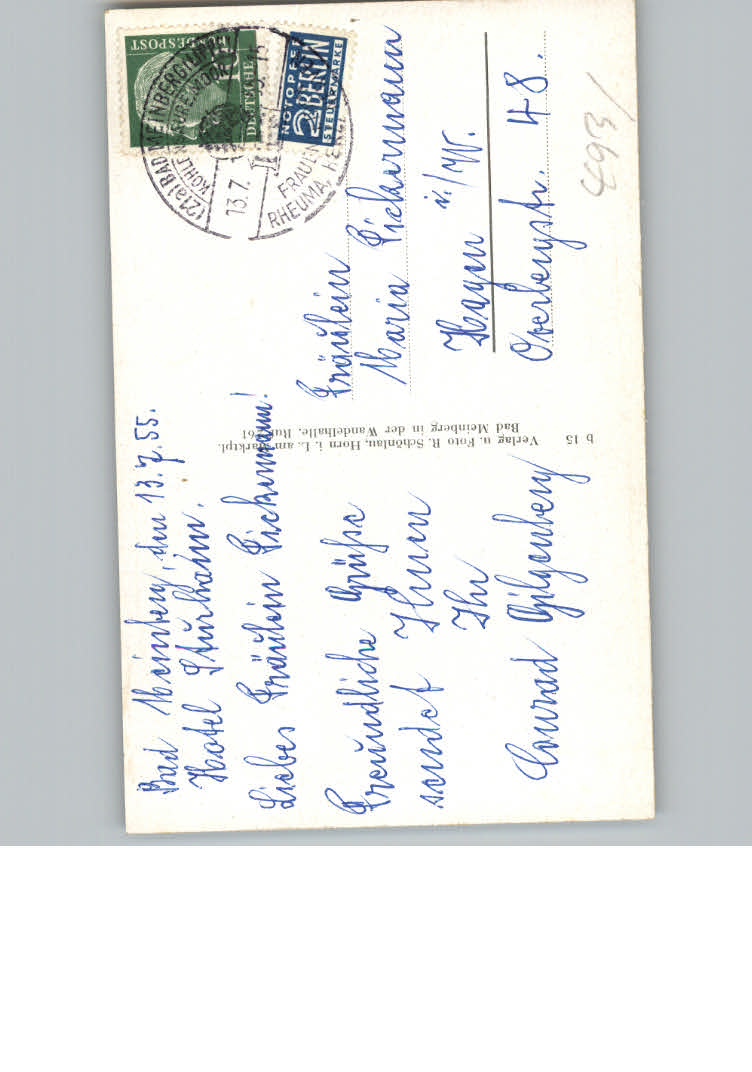 Bad Meinberg, den 13.7.55.
Hotel Sturhahn.
Liebes Fräulein Fickermann!
Freundliche Grüße
sendet Ihnen
Ihr
Conrad Gilgenberg
b 15 Verlag u. Foto R. Schönlau, Horn i. L. am Marktpl.
Bad Meinberg in der Wandelhalle, Ruf 761
DEUTSCHE
BUNDESPOST
NOTOPFER
2 BERLIN
STEUERMARKE
(21a) BAD MEINBERG
13.7.
FRAUEN
RHEUMA, HERZ
Fräulein
Maria Fickermann
Hagen i./W.
Overbergstr. 48.
493/